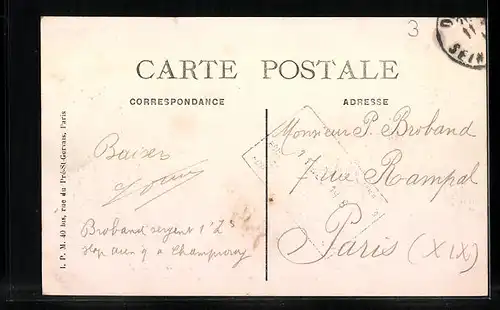 3
CARTE POSTALE
CORRESPONDANCE
ADRESSE
Baiser
Broband sergent 1
à Champrosay
Monsieur P. Broband
7 rue Rampal
Paris (XIX)
I. P. M. 40 bis, rue du Pré-St-Gervais, Paris
SEIN